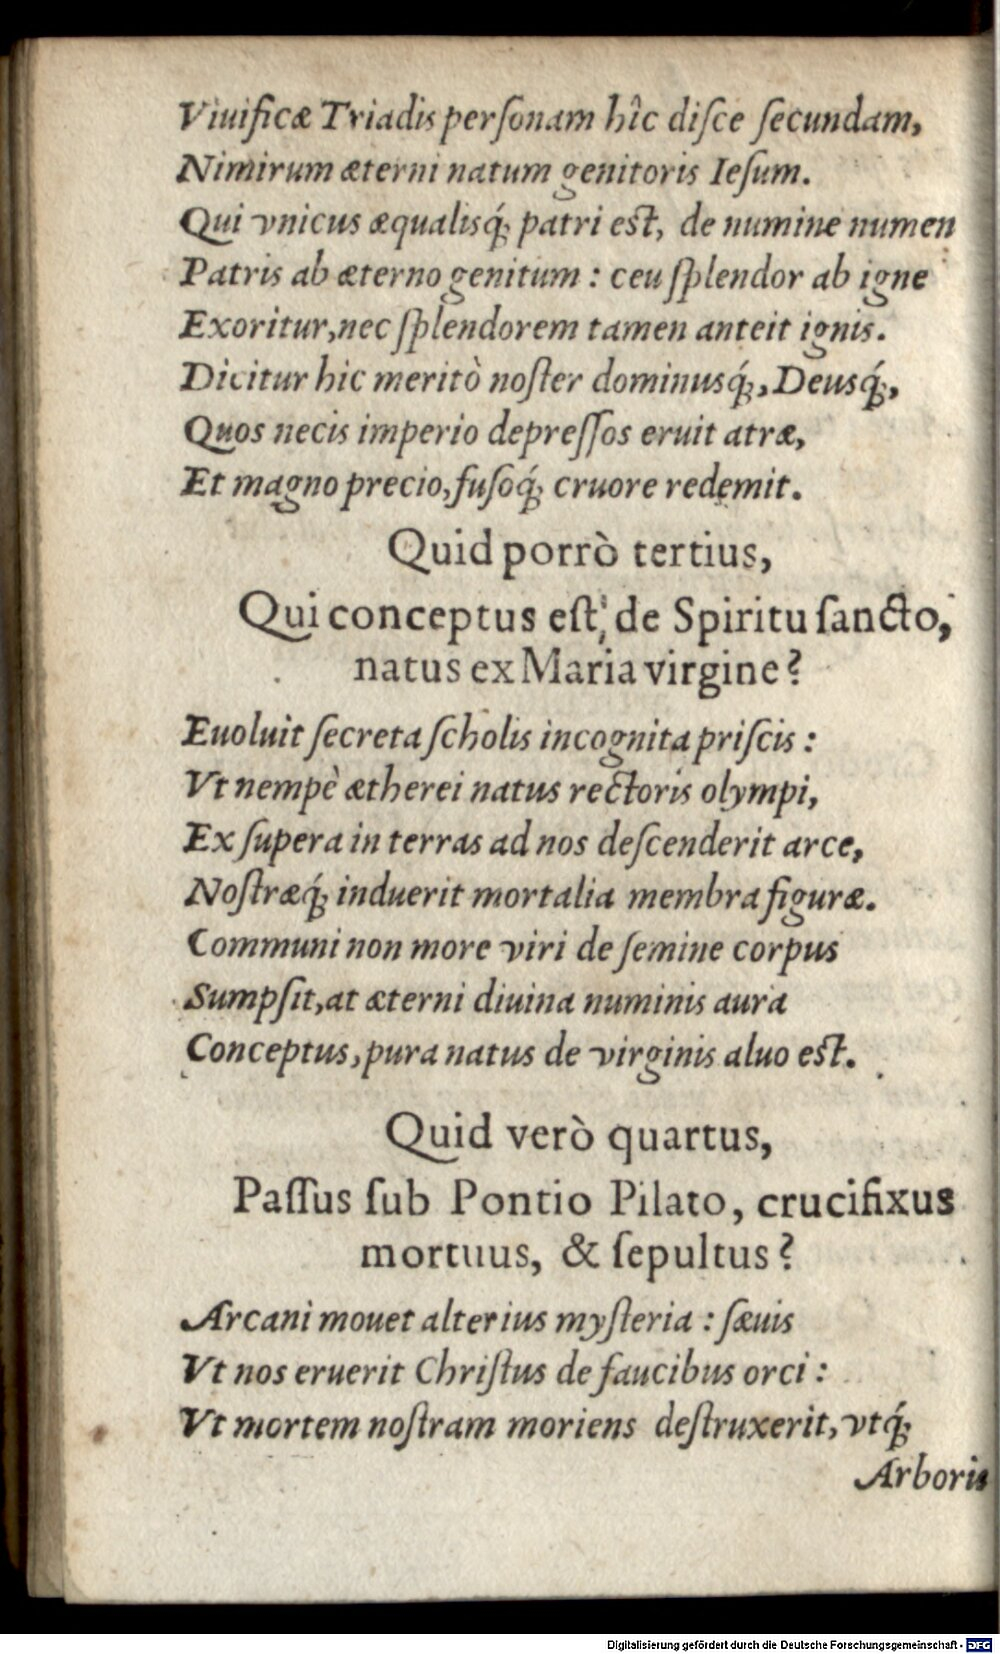 Viuificæ Triadis perſonam hîc diſce ſecundam,
Nimirum æterni natum genitoris Ieſum.
Qui vnicus æqualisq́; patri est, de numine numen
Patris ab æterno genitum : ceu ſplendor ab igne
Exoritur, nec ſplendorem tamen anteit ignis.
Dicitur hic meritò noſter dominusq́;, Deusq́;,
Quos necis imperio depreſſos eruit atræ,
Et magno precio, fuſoq́; cruore redemit.
Quid porrò tertius,
Qui conceptus eſt, de Spiritu ſancto,
natus ex Maria virgine?
Euoluit ſecreta ſcholis incognita priſcis :
Vt nempè ætherei natus rectoris olympi,
Ex ſupera in terras ad nos deſcenderit arce,
Noſtræq́; induerit mortalia membra figuræ.
Communi non more viri de ſemine corpus
Sumpſit, at æterni diuina numinis aura
Conceptus, pura natus de virginis aluo est.
Quid verò quartus,
Paſſus ſub Pontio Pilato, crucifixus
mortuus, & ſepultus?
Arcani mouet alterius myſteria : ſæuis
Vt nos eruerit Chriſtus de faucibus orci :
Vt mortem noſtram moriens deſtruxerit, vtq́;
Arboris
Digitalisierung gefördert durch die Deutsche Forschungsgemeinschaft - DFG